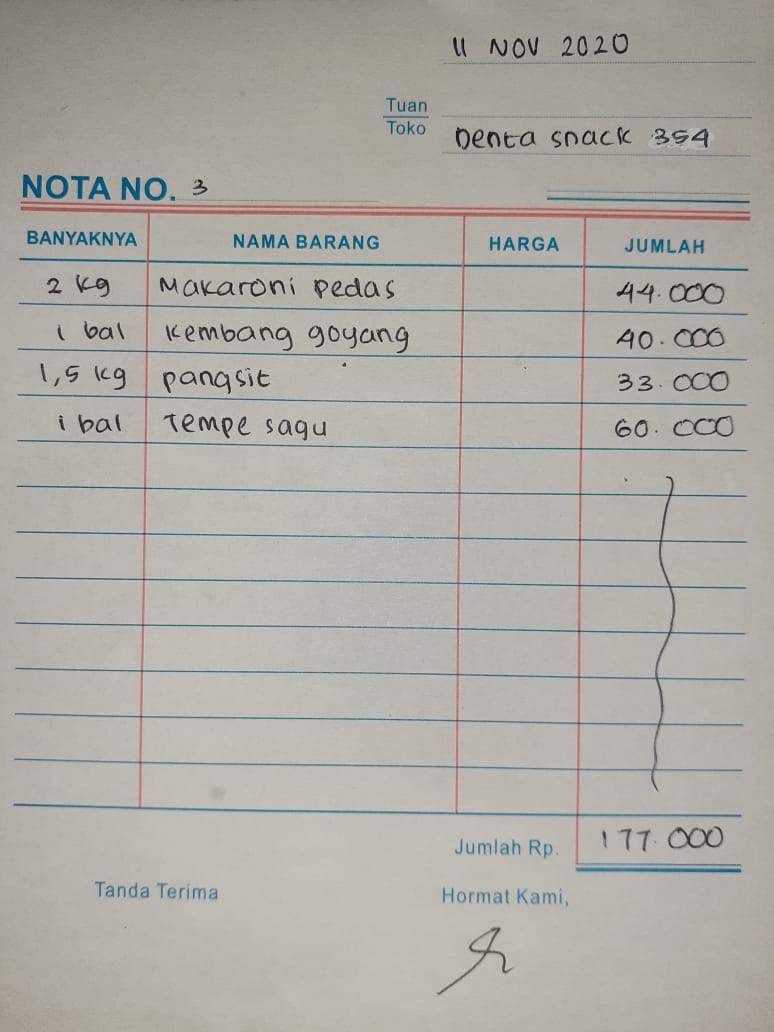 11 NOV 2020
Tuan
Toko Denta snack 354
NOTA NO. 3
BANYAKNYA NAMA BARANG HARGA JUMLAH
2 kg Makaroni pedas 44.000
1 bal kembang goyang 40.000
1,5 kg pangsit 33.000
1 bal Tempe sagu 60.000
Jumlah Rp. 177.000
Tanda Terima Hormat Kami,